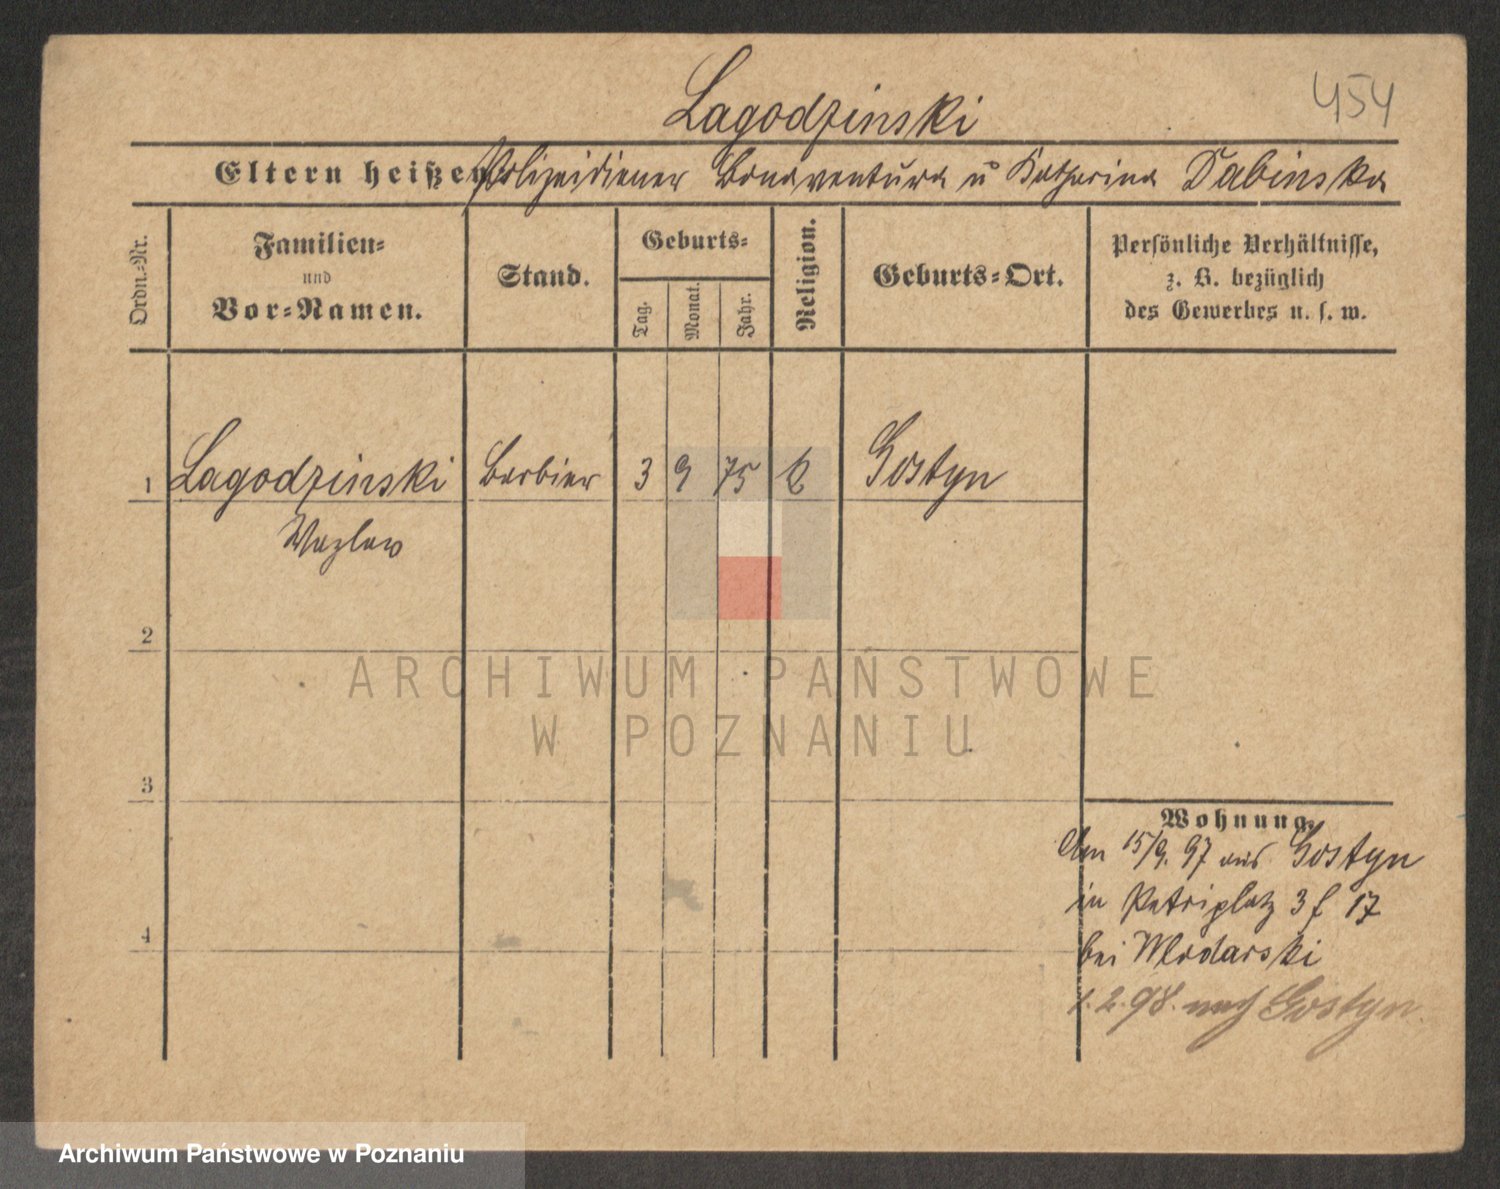 454
Lagodzinski
Eltern heißen Polizeidiener Bonaventura u Katharina Dabinska
Ordn.=Nr.
Familien=
und
Vor=Namen.
Stand.
Geburts=
Tag.
Monat.
Jahr.
Religion.
Geburts=Ort.
Persönliche Verhältnisse,
z. B. bezüglich
des Gewerbes u. s. w.
1 Lagodzinski Barbier 3 9 75 k Gostyn
Wazlaw
2
3
4
Wohnung.
Am 15/9. 97 aus Gostyn
in Petriplatz 3 f 17
bei Wlodarski
1. 2. 98. nach Gostyn.
ARCHIWUM PAŃSTWOWE
W POZNANIU
Archiwum Państwowe w Poznaniu